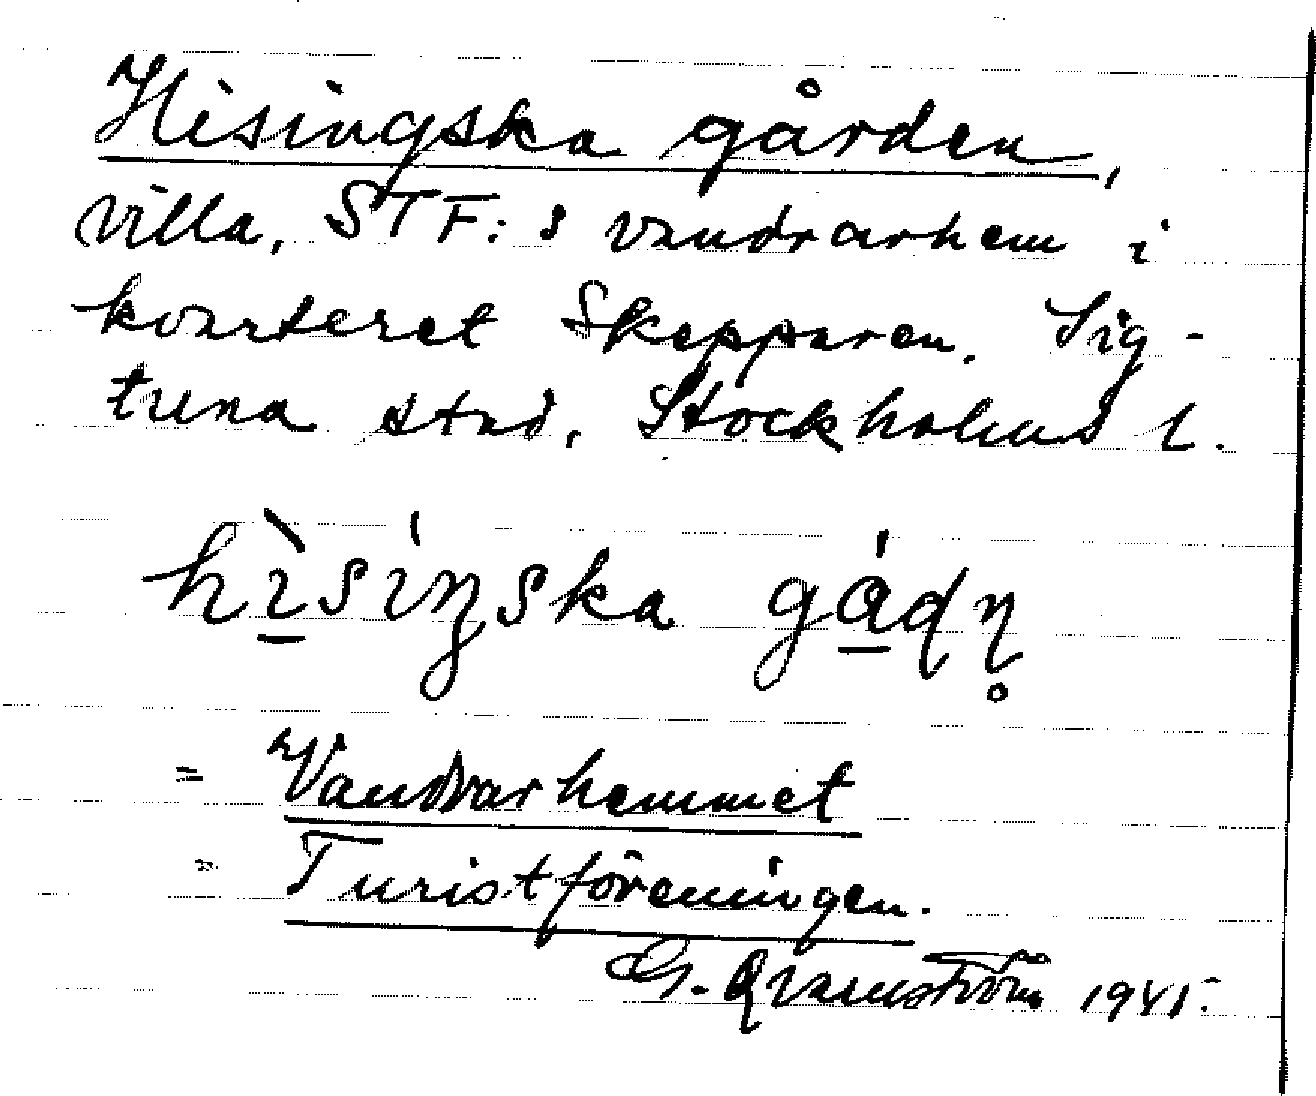 Hisingska gården,
villa, STF:s vandrarhem i
kvarteret Skepparen. Sig-
tuna stad, Stockholms l.
hìsiŋska gádn̥
= Vandrarhemmet
= Turistföreningen.
G. Qvarnström 1945.